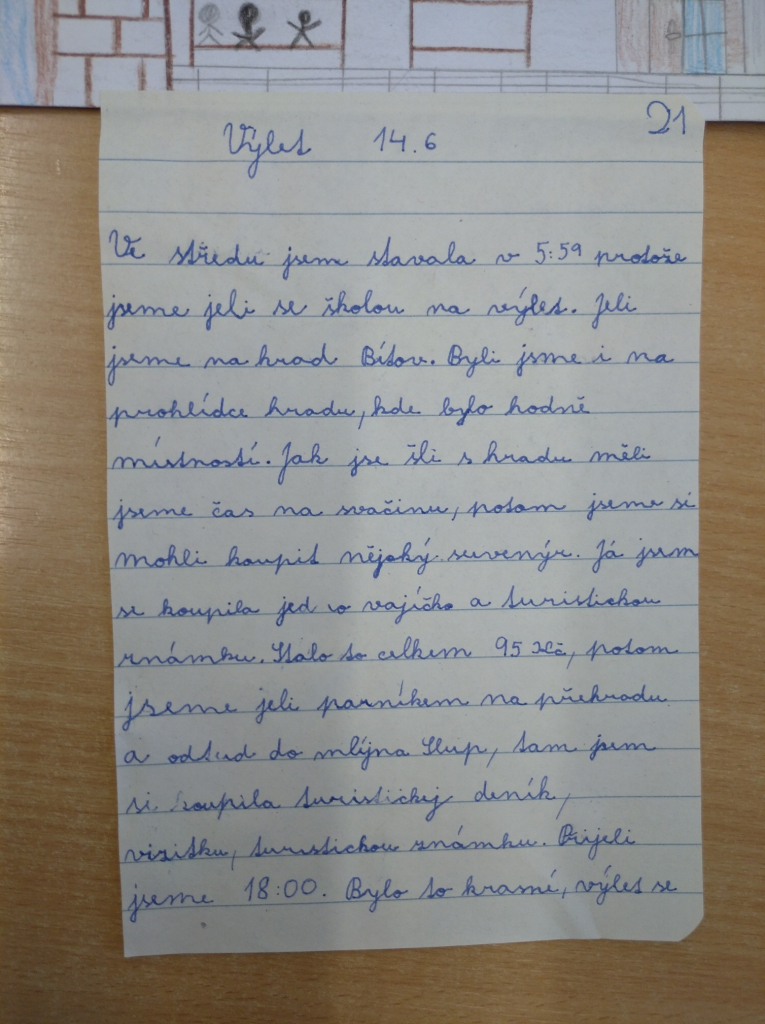 21
Výlet 14.6
Ve středu jsem stavala v 5:59 protože
jseme jeli se školou na výlet. Jeli
jseme na hrad Bítov. Byli jsme i na
prohlídce hradu, kde bylo hodně
místností. Jak jse šli s hradu měli
jseme čas na svačinu, potom jseme si
mohli koupit nějaký suvenýr. Já jsem
se koupila jed o vajíčko a turistickou
známku. Stálo to celkem 95 Kč, potom
jseme jeli parníkem na přehradu
a odtud do mlýna Slup, tam jsem
si koupila turistickej deník,
vizitku, turistickou známku. Přijeli
jseme 18:00. Bylo to krasné, výlet se